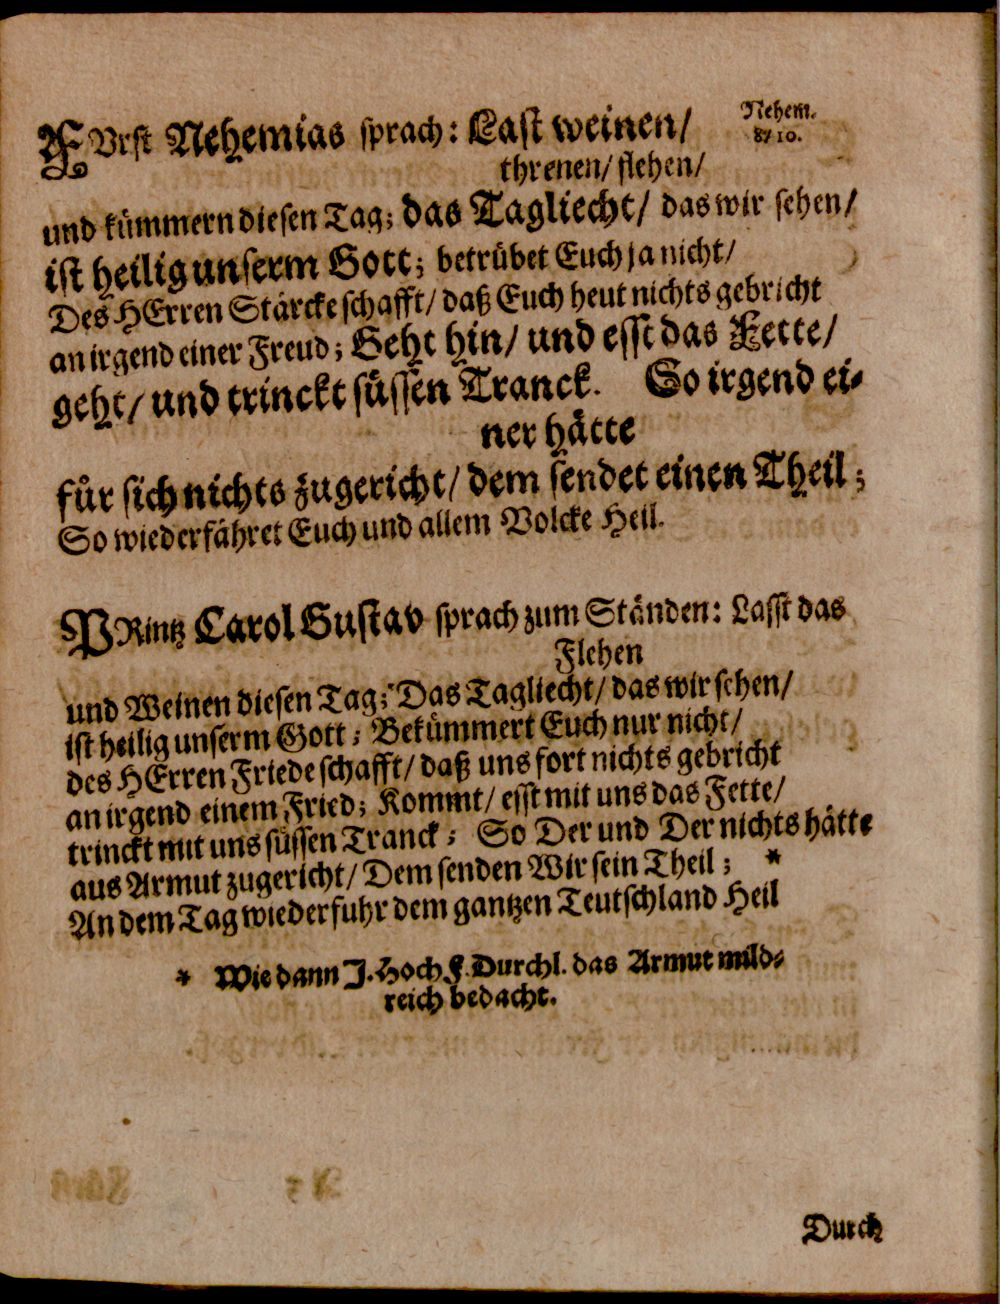 FUrst Nehemias sprach: Last weinen/
Nehem.
8/10.
threnen/ flehen/
und kümmern diesen Tag; das Tagliecht/ das wir sehen/
ist heilig unserm Gott; betrübet Euch ja nicht/
Des HErren Stärcke schafft/ daß Euch heut nichts gebricht
an irgend einer Freud; Geht hin/ und esst das Fette/
geht/ und trinckt süssen Tranck. So irgend ei-
ner hätte
für sich nichts zugericht/ dem sendet einen Theil;
So wiederfähret Euch und allem Volcke Heil.
PRintz Carol Gustav sprach zum Ständen: Lasst das
Flehen
und Weinen diesen Tag; Das Tagliecht/ das wir sehen/
ist heilig unserm Gott; Bekümmert Euch nur nicht/
des HErren Friede schafft/ daß uns fort nichts gebricht
an irgend einem Fried; Kommt/ esst mit uns das Fette/
trinckt mit uns süssen Tranck; So Der und Der nichts hätte
aus Armut zugericht/ Dem senden Wir sein Theil; *
An dem Tag wiederfuhr dem gantzen Teutschland Heil
* Wie dann J. Hoch F. Durchl. das Armut mild-
reich bedacht.
Durch